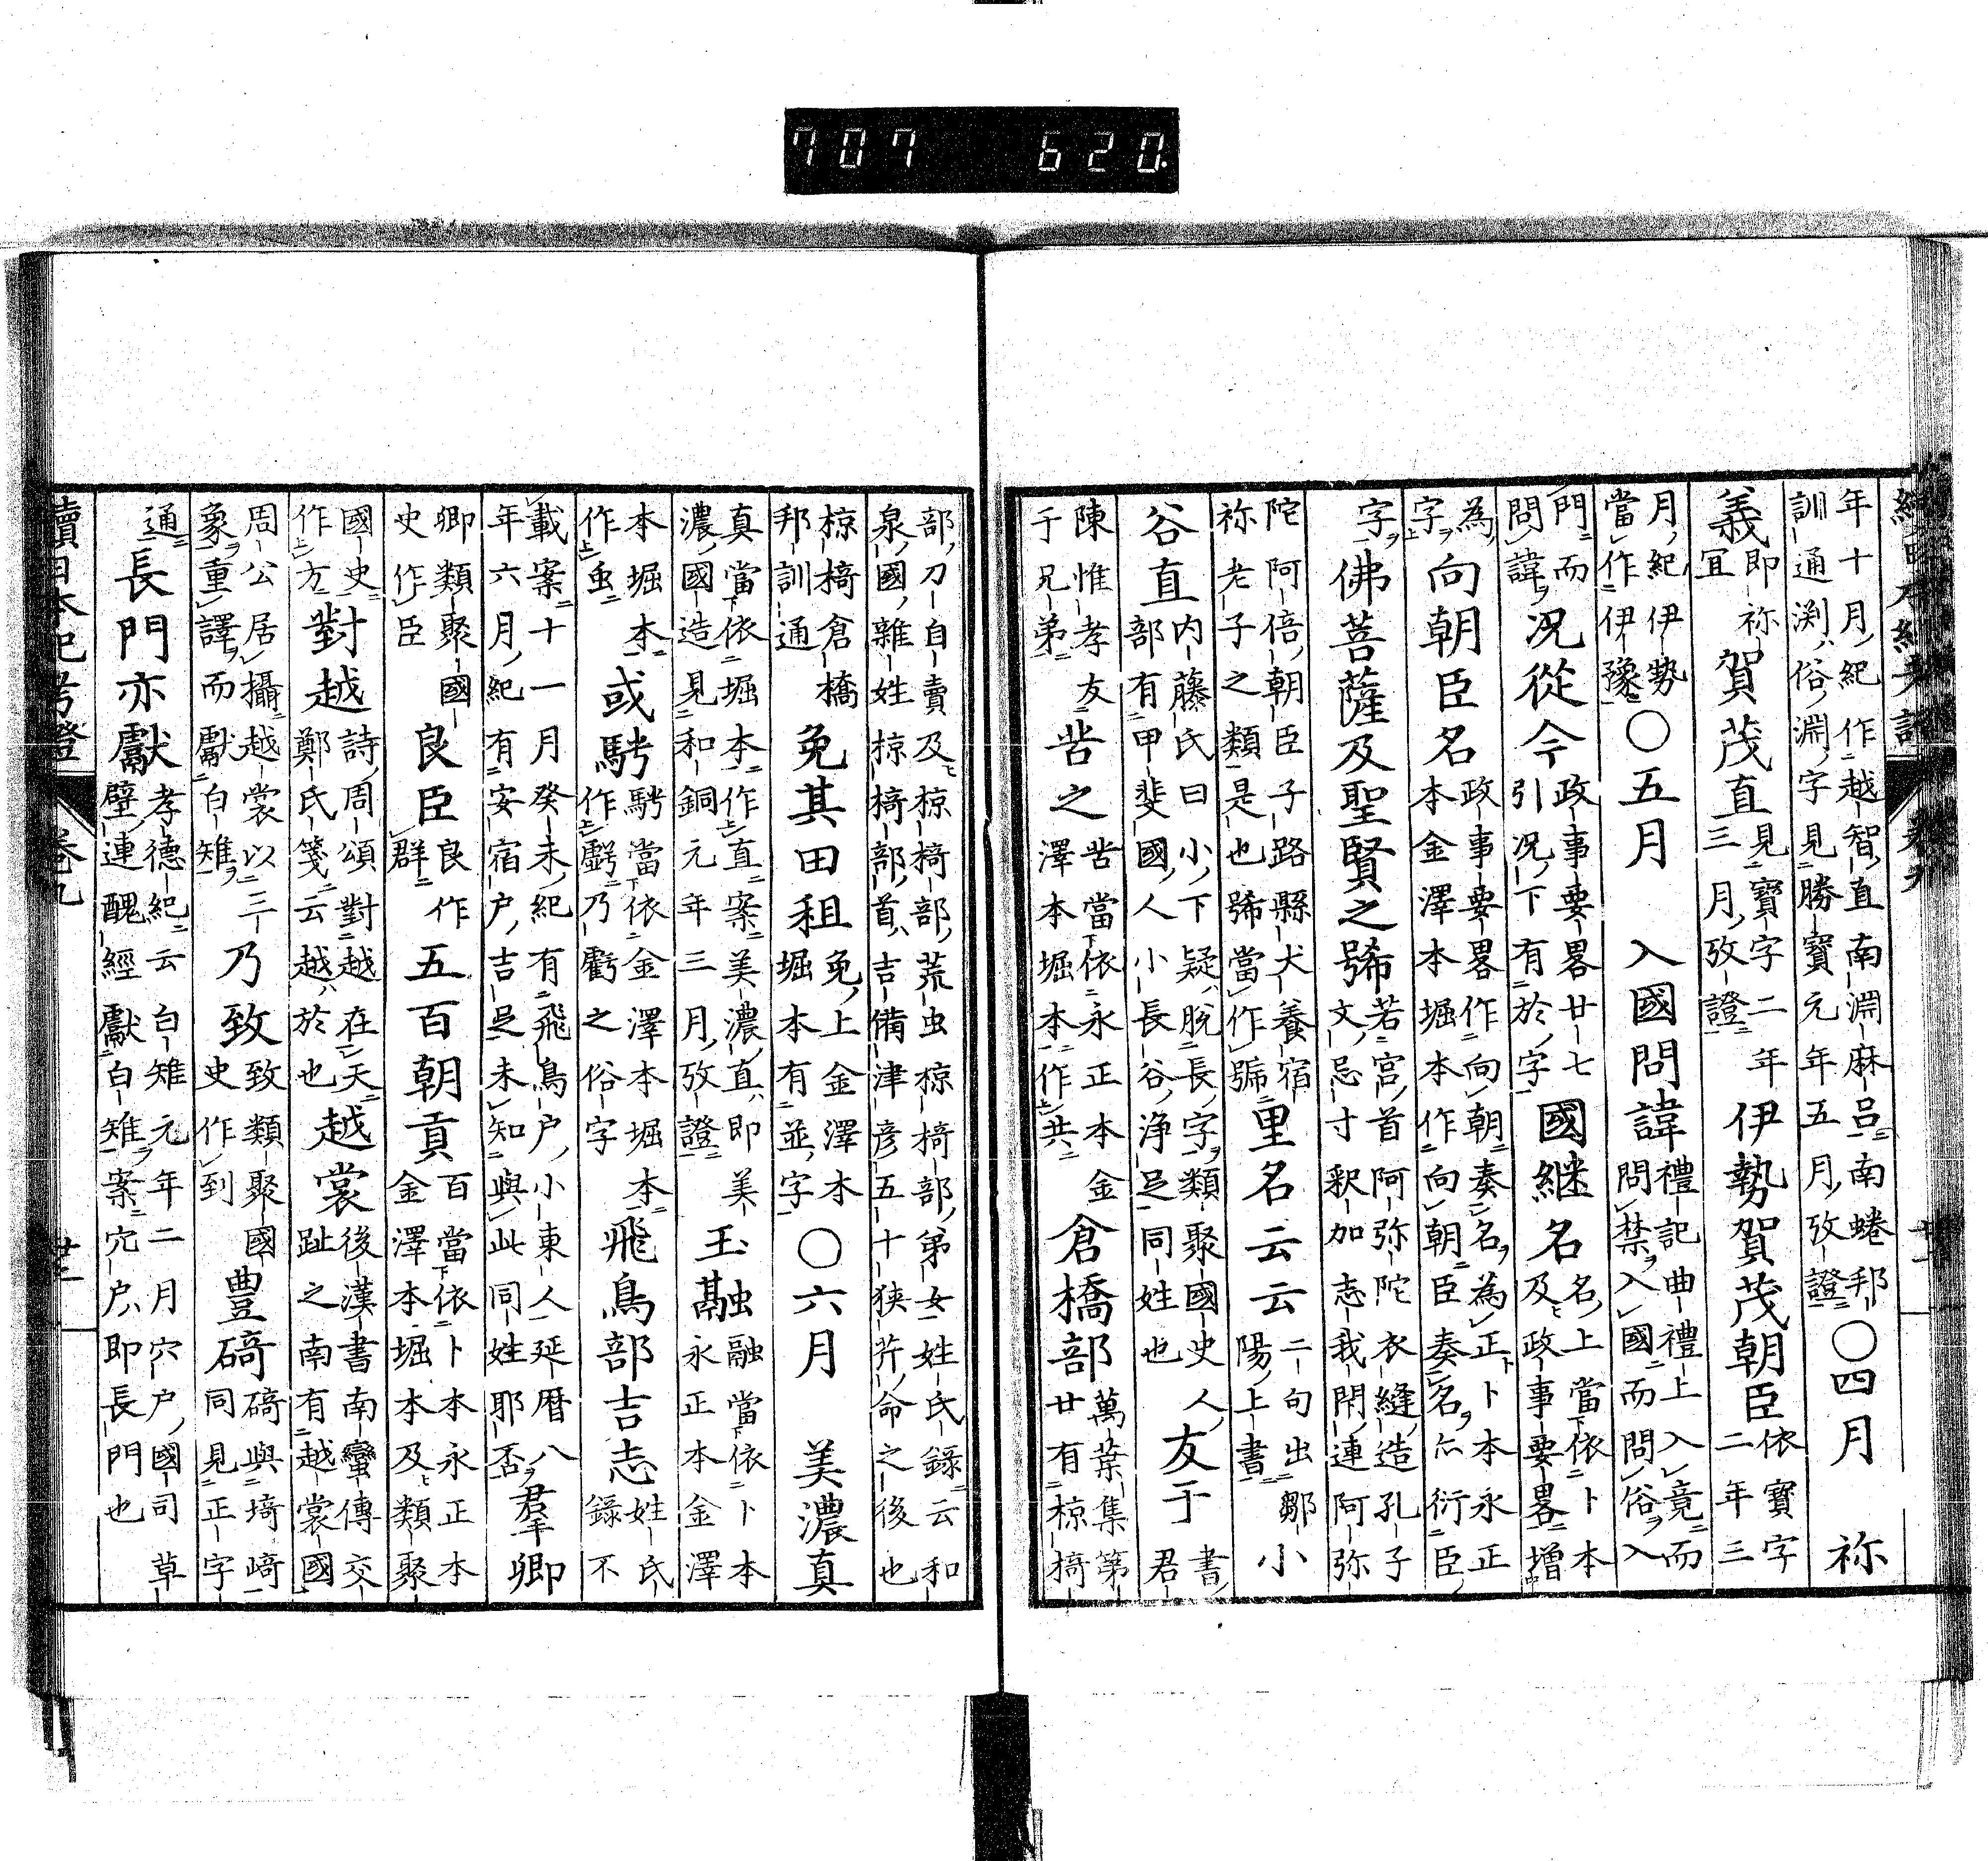 707 620.
續日本紀考證 卷九
年十月紀作越智直南淵麻呂南蜷邦
訓通渕俗淵字見勝寶元年五月攷證○四月 祢
義即祢宜賀茂直見寶字二年三月攷證伊勢賀茂朝臣依寶字二年三
月紀伊勢當作伊豫○五月 入國問諱禮記曲禮上入竟而問禁入國而問俗入
門而問諱况從今政事要畧廿七引况下有於字國継名名上當依卜本及政事要畧增
為字向朝臣名政事要畧作向朝奏名為正卜本永正本金澤本堀本作向朝臣奏名尒衍臣
字佛菩薩及聖賢之號若宮首阿弥陀衣縫造孔子文忌寸釈加志我閇連阿弥
陀阿倍朝臣子路縣犬養宿祢老子之類是也號當作號里名云云二句出鄒陽上書小
谷直內藤氏曰小下疑脫長字類聚國史人部有甲斐國人小長谷浄足同姓也友于書君
陳惟孝友于兄弟呰之呰當依永正本金澤本堀本作共倉橋部萬葉集第廿有椋椅
部刀自賣及椋椅部荒虫椋椅部弟女姓氏録云和泉國雜姓椋椅部首吉備津彦五十狭芹命之後也
椋椅倉橋邦訓通免其田租免上金澤本堀本有並字○六月 美濃真
真當依堀本作直案美濃直即美濃國造見和銅元年三月攷證玉融融當依卜本永正本金澤
本堀本作虫或騁騁當依金澤本堀本作虧乃虧之俗字飛鳥部吉志姓氏録不
載案十一月癸未紀有飛鳥户小東人延暦八年六月紀有安宿户吉足未知與此同姓耶否羣卿
卿類聚國史作臣良臣良作群五百朝貢百當依卜本永正本金澤本堀本及類聚
國史作方對越詩周頌對越在天鄭氏箋云越於也越裳後漢書南蠻傳交趾之南有越裳國
周公居攝越裳以三象重譯而獻白雉乃致致類聚國史作到豊碕碕與埼﨑同見正字
通長門亦獻孝德紀云白雉元年二月穴户國司草壁連醜經獻白雉案穴户即長門也
續日本紀考證 卷九 廿二